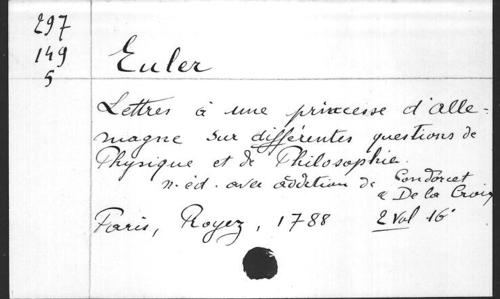 297
149
5
Euler
Lettres à une princesse d'Alle-
magne sur différentes questions de
Physique et de Philosophie.
n. éd. avec addition de Condorcet
& De la Croix
Paris, Royez, 1788 2 Vol 16°